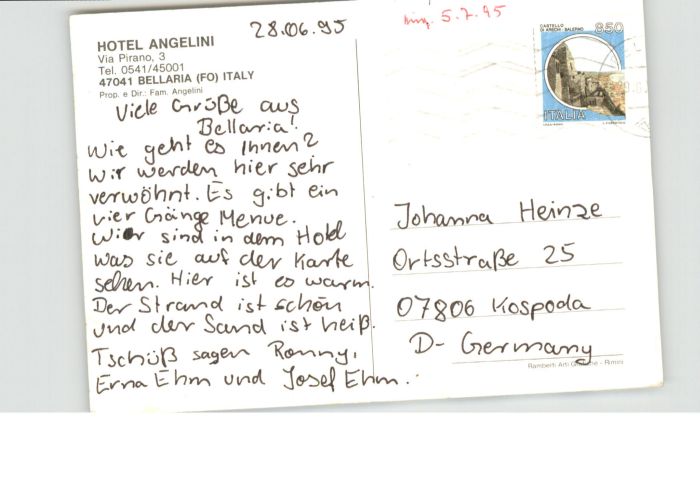 28.06.95
5.7.95
HOTEL ANGELINI
Via Pirano, 3
Tel. 0541/45001
47041 BELLARIA (FO) ITALY
Prop. e Dir.: Fam. Angelini
CASTELLO
DI ARECHI - SALERNO
850
ITALIA
Viele Grüße aus
Bellaria!
Wie geht es Ihnen?
Wir werden hier sehr
verwöhnt. Es gibt ein
vier Gänge Menue.
Wir sind in dem Hotel
was sie auf der Karte
sehen. Hier ist es warm.
Der Strand ist schön
und der Sand ist heiß.
Tschüß sagen Ronny,
Erna Ehm und Josef Ehm.
Johanna Heinze
Ortsstraße 25
07806 Kospoda
D- Germany
Ramberti Arti Grafiche - Rimini